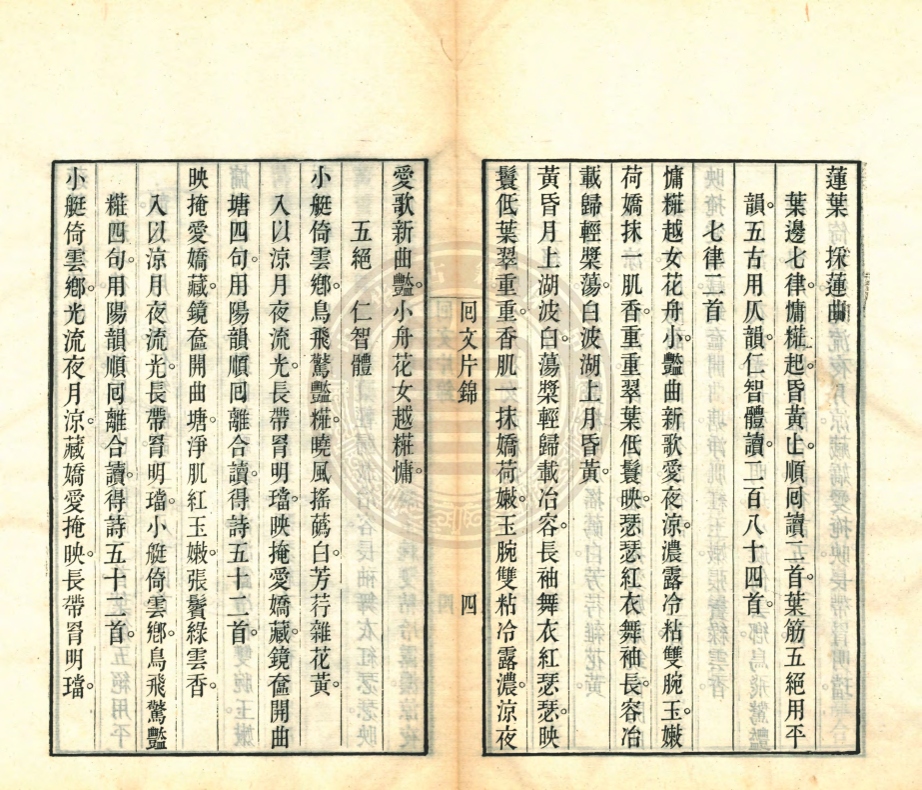 蓮葉　採蓮曲
葉邊七律慵糚起。昏黃止。順囘讀二首。葉筋五絕用平
韻。五古用仄韻。仁智體讀。二百八十四首。
七律二首
慵糚越女花舟小。艷曲新歌愛夜涼。濃露冷粘雙腕玉。嫩
荷嬌抹一肌香。重重翠葉低鬟映。瑟瑟紅衣舞袖長。容冶
載歸輕槳蕩。白波湖上月昏黃。
黃昏月上湖波白。蕩槳輕歸載冶容。長袖舞衣紅瑟瑟。映
鬟低葉翠重重。香肌一抹嬌荷嫩。玉腕雙粘冷露濃。涼夜
囘文片錦
四
愛歌新曲艷。小舟花女越糚慵。
五絕　仁智體
小艇倚雲鄉。鳥飛驚艷糚。曉風搖蕅白。芳荇雜花黃。
入以涼月夜流光。長帶胷明璫。映掩愛嬌藏。鏡奩開曲
塘四句。用陽韻順囘離合讀。得詩五十二首。
映掩愛嬌藏。鏡奩開曲塘。淨肌紅玉嫩。張鬢綠雲香。
入以涼月夜流光。長帶胷明璫。小艇倚雲鄉。鳥飛驚艷
糚四句。用陽韻順囘離合讀。得詩五十二首。
小艇倚雲鄉。光流夜月涼。藏嬌愛掩映。長帶胷明璫。